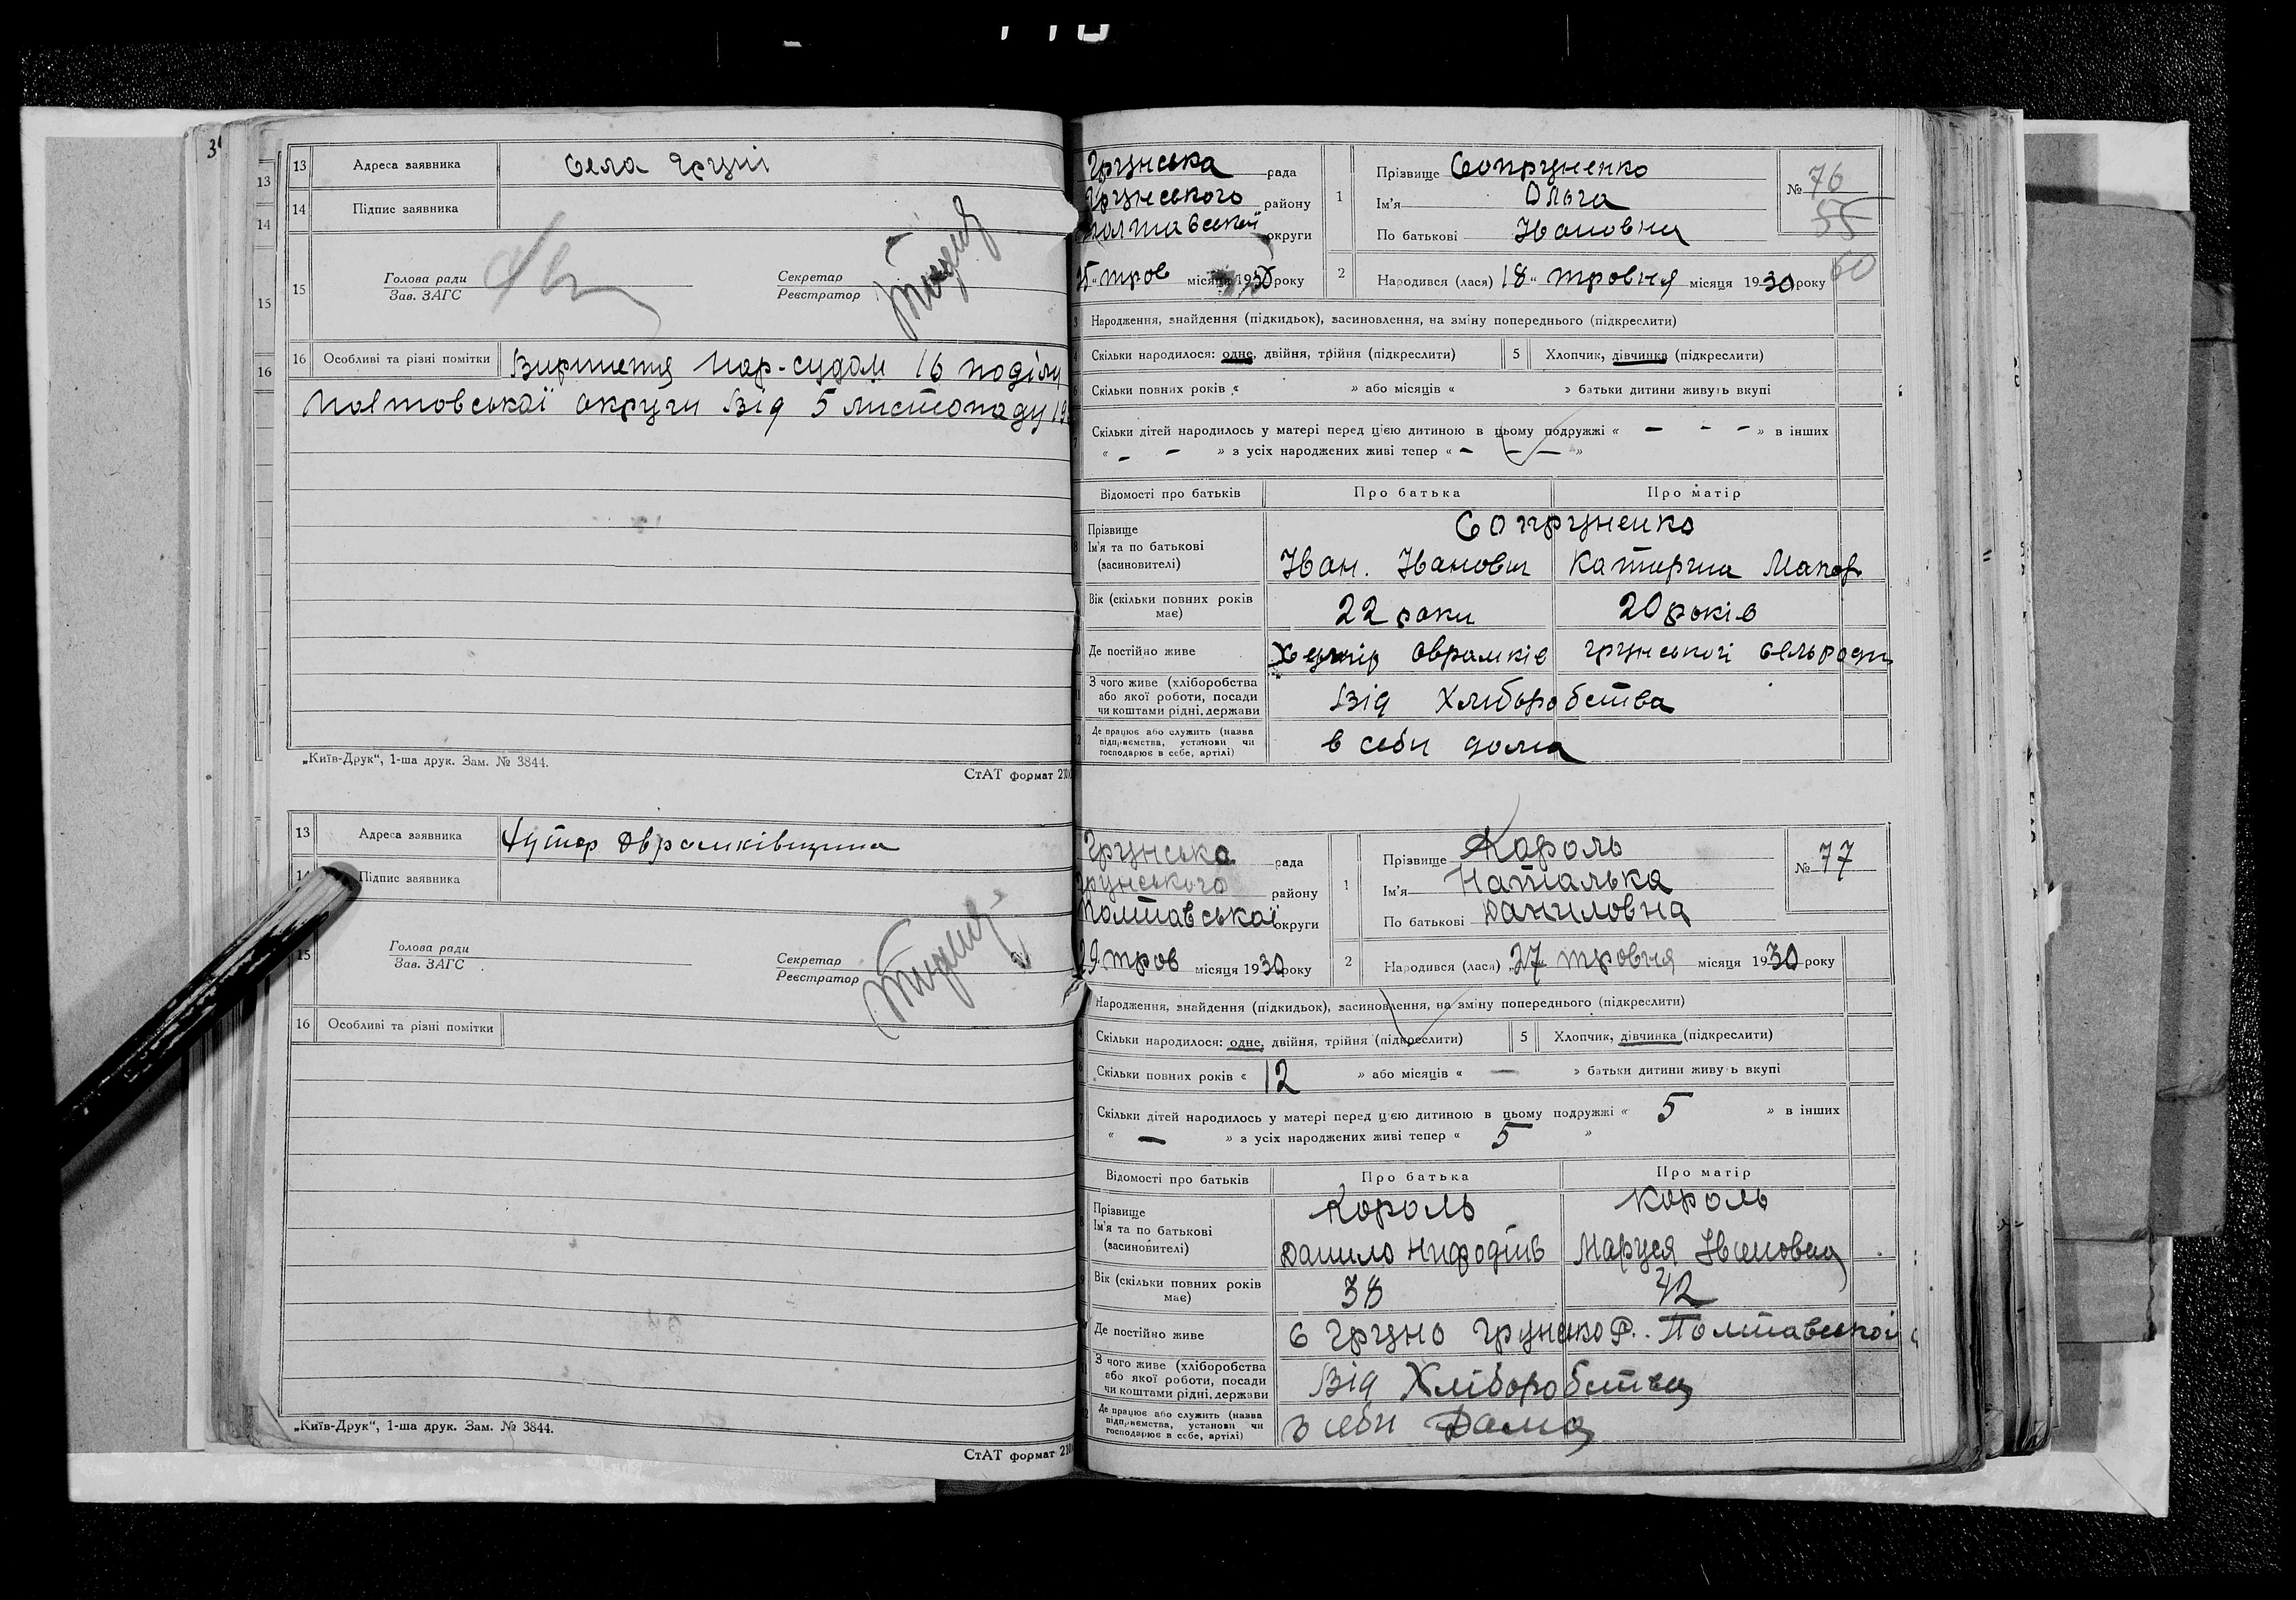 13 Адреса заявника Села Груні
14 Підпис заявника
15 Голова ради
Зав. ЗАГС
Секретар
Реєстратор
16 Особливі та різні помітки Вирішення Нар-судом 16 поділу
Полтовської округи Від 5 листопаду 19
„Київ-Друк“, 1-ша друк. Зам. № 3844.
СтАТ формат 210
13 Адреса заявника Хутор Аврамківщина
14 Підпис заявника
15 Голова ради
Зав. ЗАГС
Секретар
Реєстратор
16 Особливі та різні помітки
„Київ-Друк“, 1-ша друк. Зам. № 3844.
СтАТ формат 210
Грунська рада
Грунського району
Полтавської округи
25 "тров місяця 1930 року
1 Прізвище Сопруненко
Ім'я Ольга
По батькові Івановна
№ 76
55
60
2 Народився (лася) 18 " тровня місяця 1930 року
Народження, знайдення (підкидьок), засиновлення, на зміну попереднього (підкреслити)
Скільки народилося: одне, двійня, трійня (підкреслити) 5 Хлопчик, дівчинка (підкреслити)
Скільки повних років « » або місяців « » батьки дитини живуть вкупі
Скільки дітей народилось у матері перед цією дитиною в цьому подружжі « — - — » в інших
« — — » з усіх народжених живі тепер « — — — »
Відомості про батьків Про батька Про матір
Прізвище Сопруненко
Ім'я та по батькові
(засиновителі) Іван. Іванович Катерина Макар
Вік (скільки повних років має) 22 роки 20 років
Де постійно живе Хутір Аврамків Грунської сельради
З чого живе (хліборобства
або якої роботи, посади
чи коштами рідні, держави Від Хліборобства
Де працює або служить (назва
підприємства, установи чи
господарює в себе, артілі) в себи дома
Грунська рада
Грунського району
Полтавської округи
29 тров місяця 1930 року
1 Прізвище Король
Ім'я Наталька
По батькові Даниловна
№ 77
2 Народився (лася) 27 тровня місяця 1930 року
Народження, знайдення (підкидьок), засиновлення, на зміну попереднього (підкреслити)
Скільки народилося: одне, двійня, трійня (підкреслити) 5 Хлопчик, дівчинка (підкреслити)
Скільки повних років « 12 » або місяців « — » батьки дитини живуть вкупі
Скільки дітей народилось у матері перед цією дитиною в цьому подружжі « 5 » в інших
« — » з усіх народжених живі тепер « 5 »
Відомості про батьків Про батька Про матір
Прізвище Король Король
Ім'я та по батькові
(засиновителі) Данило Маруся Івановна
Вік (скільки повних років має) 38 42
Де постійно живе с Грунь Полтавської
З чого живе (хліборобства
або якої роботи, посади
чи коштами рідні, держави Від Хліборобства
Де працює або служить (назва
підприємства, установи чи
господарює в себе, артілі) в себи Дома